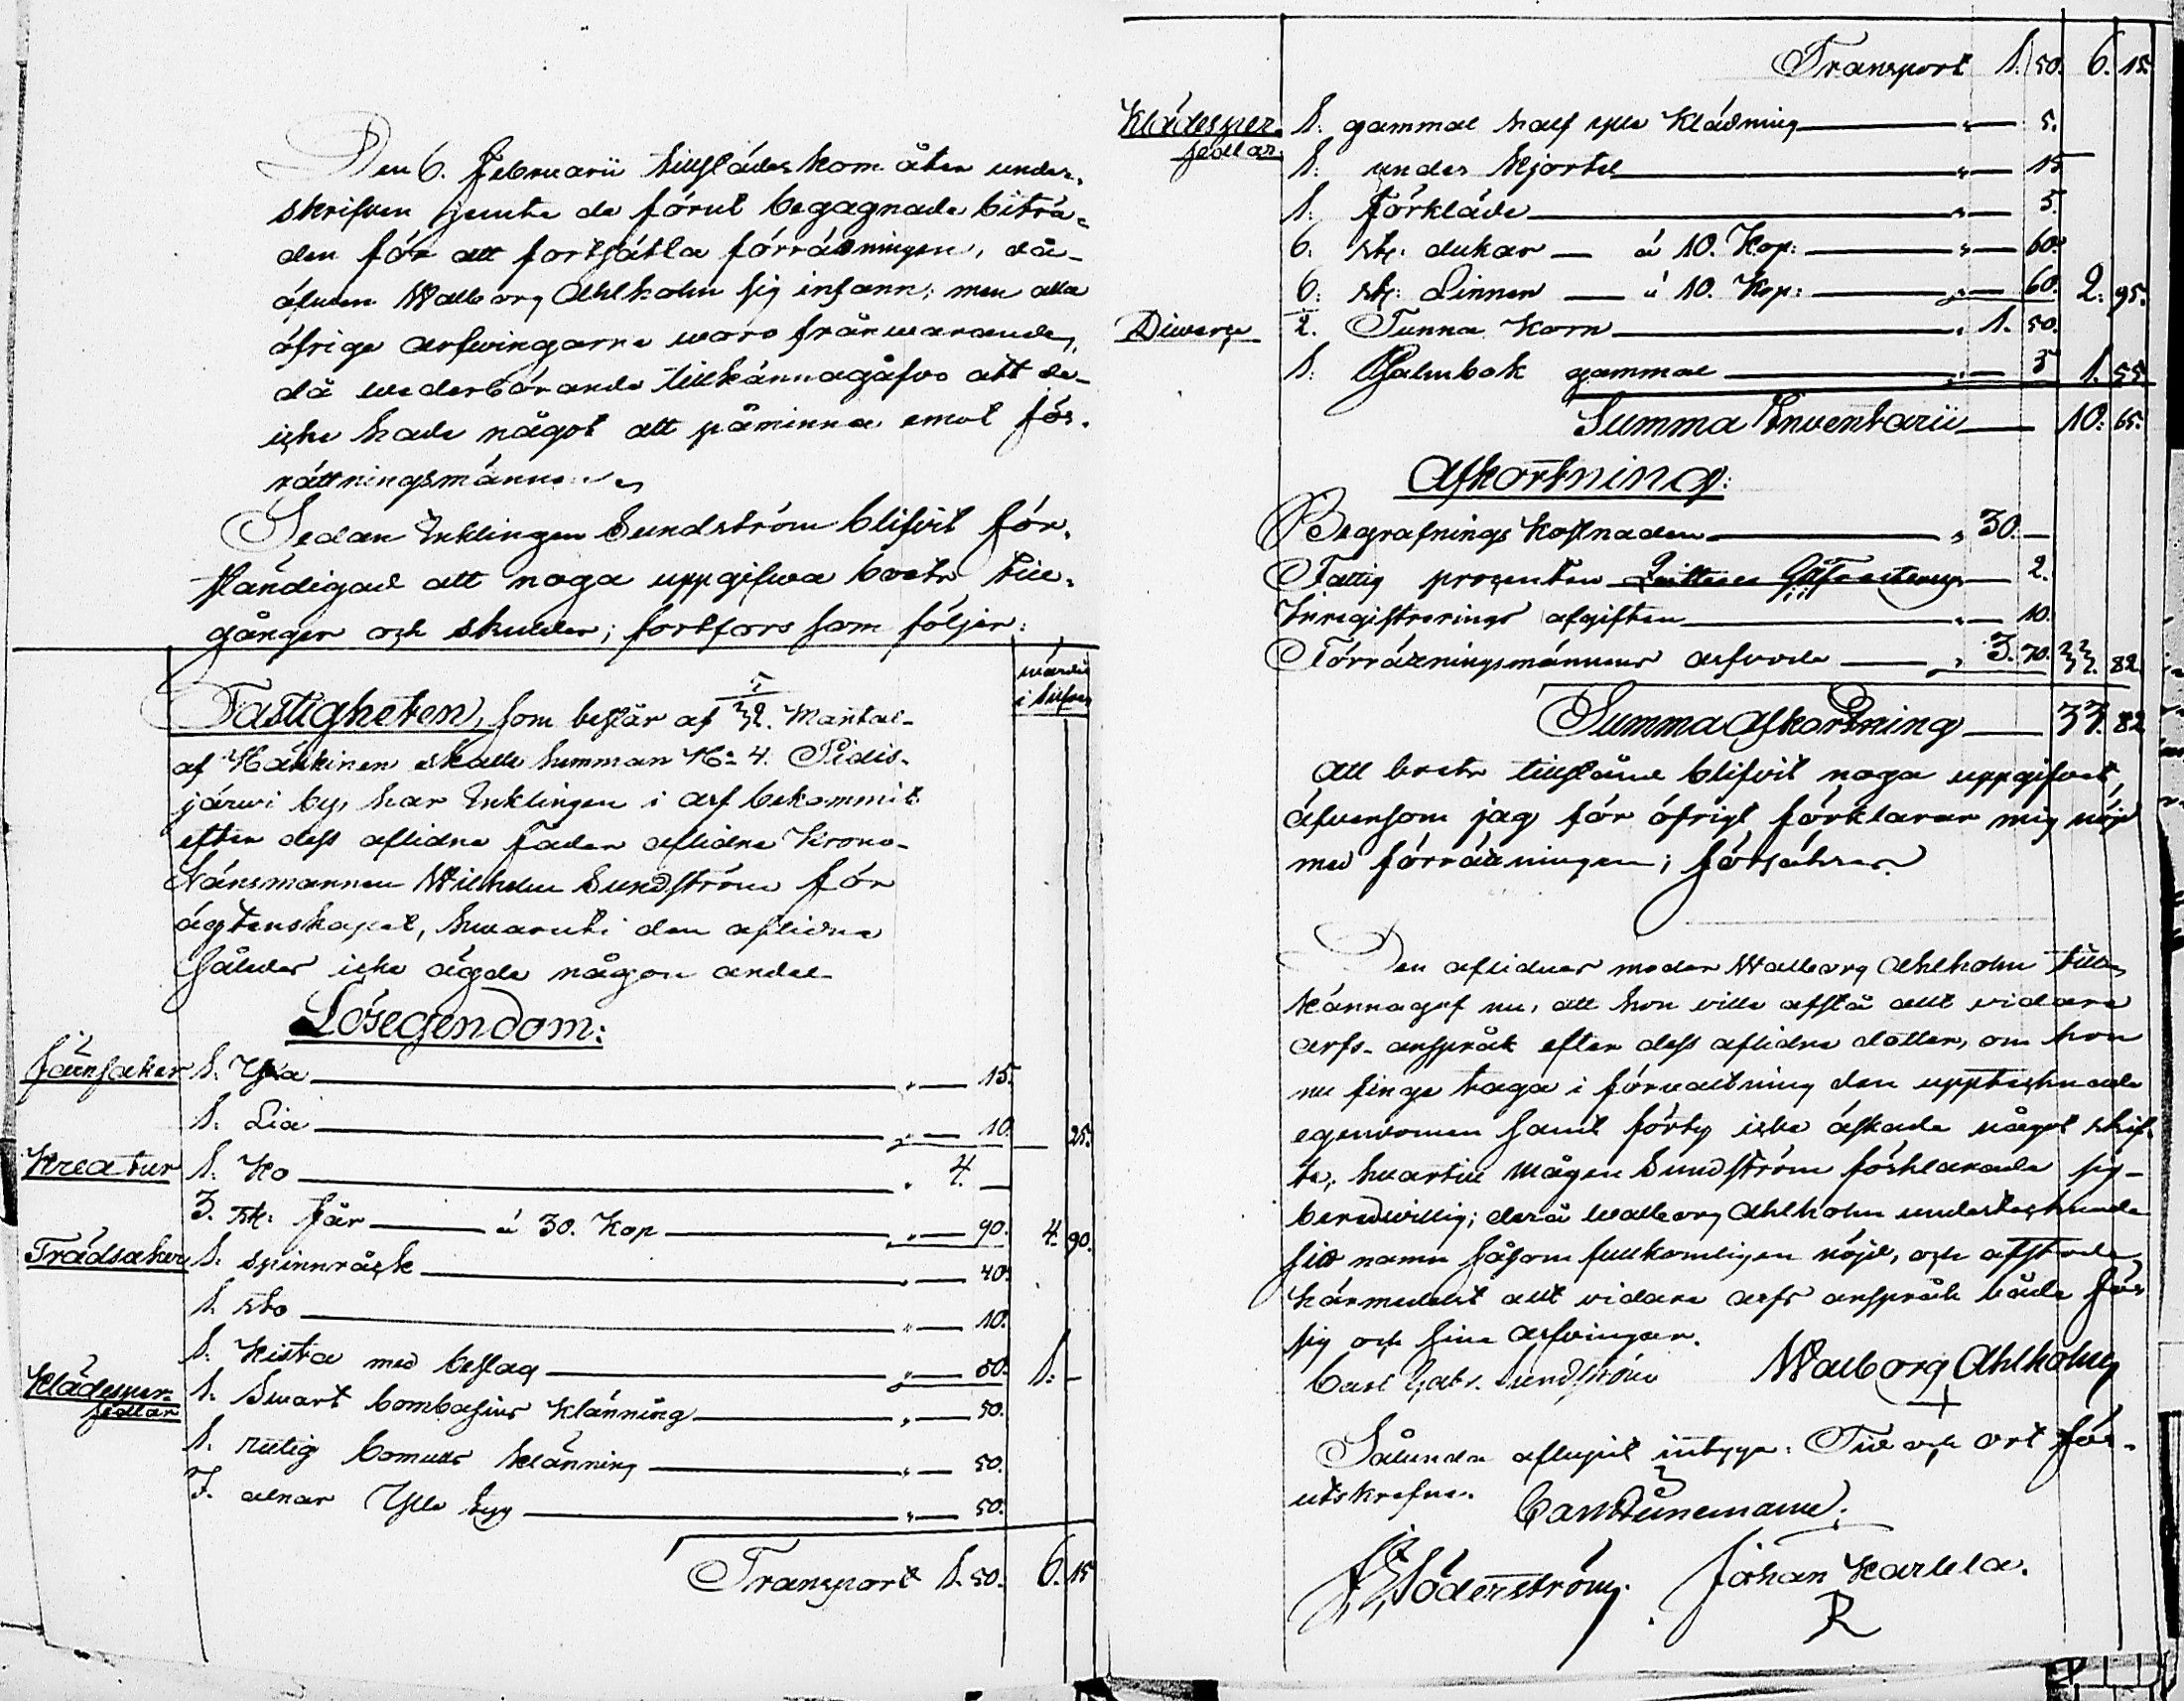 Den 6. Februarii tillstädes kom åter under-
skrifven jemte de förut begagnade biträ-
den för att fortsätta förrättningen, då
äfven Walborg Ahlholm sig infann; men alla
öfrige arfvingarne woro frånwarande,
då wederbörande tillkännagåfvo att de
icke hade något att påminna emot för-
rättningsmännen
Sedan Enklingen Sundström blifvit för-
ständigad att noga uppgifwa boets till-
gångar och skulder; fortfors som följer:
värde
i silfver
Fastigheten, som består af 5/32. Mantal
af Häkkinen skatte hemman No 4. Pidis-
järwi by, har Enklingen i arf bekommit
efter dess aflidne fader aflidne Krono-
Länsmannen Wilhelm Sundström för
ägtenskapet, hwaruti den aflidna
således icke ägde någon andel
Lösegendom:
Järnsaker 1. Yxa " — 15.
1. Lia " — 10. 25.
Kreatur 1. Ko " 4. —
3. st: får á 30. Kop " — 90. 4. 90.
Trädsaker 1. spinnråck " — 40.
1. sto " — 10.
1. Kista med beslag " — 50. 1. —
Klädesper-
sedlar 1. Swart bombasins klänning " — 50.
1. rutig bomulls klänning " — 50.
7. alnar Ylle tyg " — 50.
Transport 1. 50. 6. 15
Transport 1. 50. 6. 15.
Klädesper-
sedlar 1. gammal half ylle Klädning " — 5.
1. under kjortel " — 15
1. förkläde " — 5.
6. st: dukar — á 10. Kop: " — 60.
6. st: Linnen — á 10. Kop: " — 60. 2. 95.
Diverse 2. Tunna Korn " 1. 50.
1. Psalmbok gammal " — 5 1. 55.
Summa Inventarii 10. 65.
Afkortning:
Begrafnings kostnaden " 30. —
Fattig procenten — 2.
Inregistrerings afgiften " — 10.
Förrättningsmännens arfvode " 3. 70. 33. 82
Summa Afkortning 33. 82
Att boets tillstånd blifvit noga uppgifvet,
äfvensom jag för öfrigt förklarar mig nöjd
med förrättningen; försäkras.
Den aflidnas moder Walborg Ahlholm till-
kännagaf nu, att hon ville afstå allt vidare
arfs-anspråk efter dess aflidna dotter, om hon
nu finge taga i förvaltning den upptecknade
egendomen samt förty icke äskade något skif-
te, hvartill Mågen Sundström förklarade sig
beredwillig; derå Walborg Ahlholm undertecknade
sitt namn såsom fullkomligen nöjd, och afstode
härmedelst allt vidare arfs anspråk både för
sig och sina arfvingar.
Carl Gabr. Sundström Walborg Ahlholm
Sålunda aflupit intyga: Tid och ort för-
utskrefne.
Carl Tünemann.
Söderström. Johan Karlela.
R